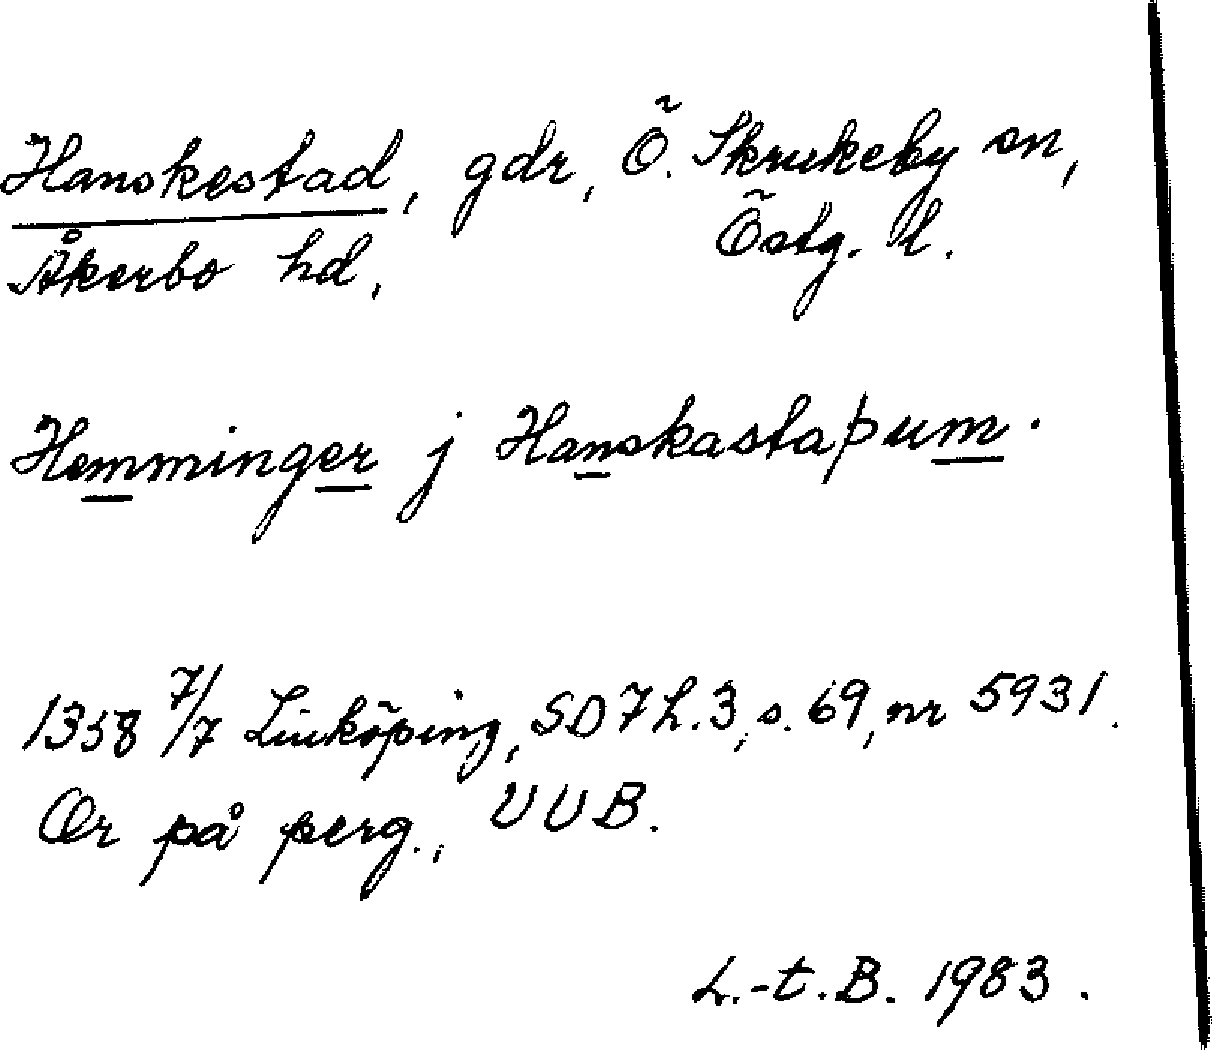 Hanskestad, gdr, Ö. Skrukeby sn,
Åkerbo hd, Östg. l.
Hemminger j Hanskastaþum.
1358 7/7 Linköping, SD 7 h. 3, s. 69, nr 5931.
Or på perg., UUB.
L.-t. B. 1983.